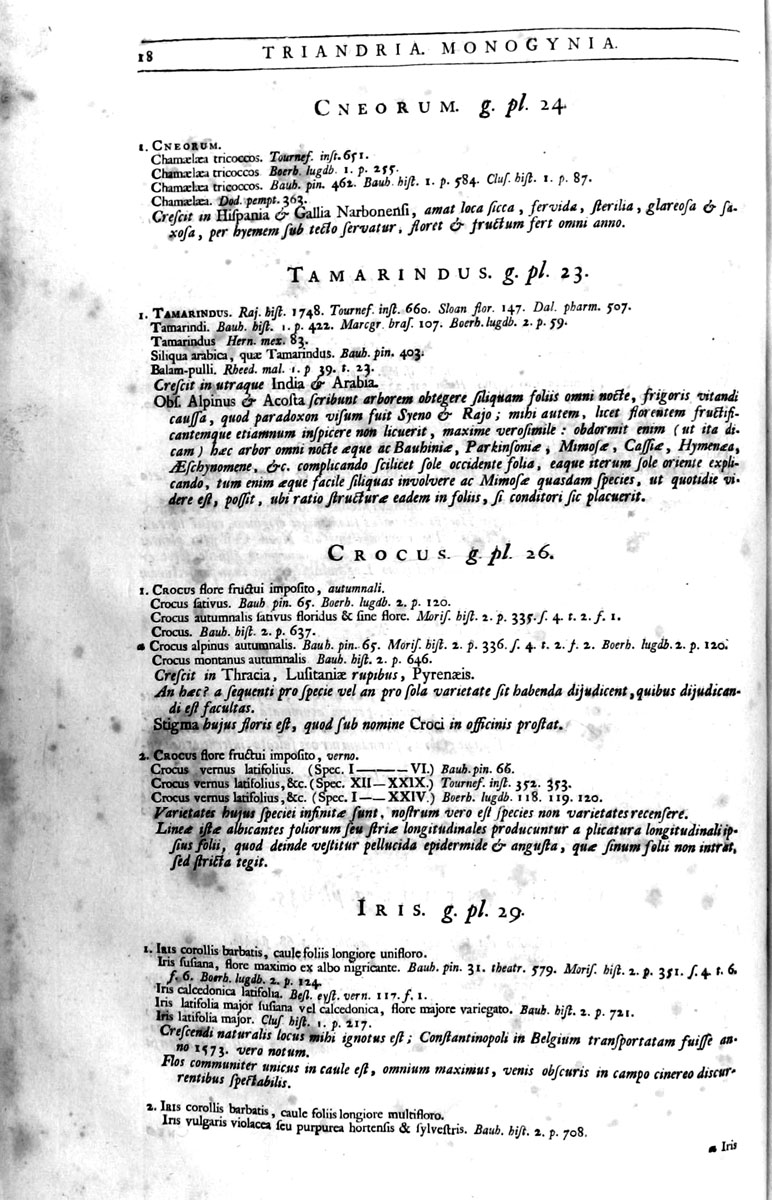 18 TRIANDRIA. MONOGYNIA.
CNEORUM. g. pl. 24.
1. CNEORUM.
Chamælæa tricoccos. Tournef. inſt. 651.
Chamælæa tricoccos Boerh. lugdb. 1. p. 255.
Chamælæa tricoccos. Bauh. pin. 462. Bauh. hiſt. 1. p. 584. Cluſ. hiſt. 1. p. 87.
Chamælæa. Dod. pempt. 363.
Creſcit in Hiſpania & Gallia Narbonenſi, amat loca ſicca, fervida, ſterilia, glareoſa & ſa-
xoſa, per hyemem ſub tecto ſervatur, floret & fructum fert omni anno.
TAMARINDUS. g. pl. 23.
1. TAMARINDUS. Raj. hiſt. 1748. Tournef. inſt. 660. Sloan flor. 147. Dal. pharm. 507.
Tamarindi. Bauh. hiſt. 1. p. 422. Marcgr. braſ. 107. Boerh. lugdb. 2. p. 59.
Tamarindus Hern. mex. 83.
Siliqua arabica, quæ Tamarindus. Bauh. pin. 403.
Balam-pulli. Rheed. mal. 1. p 39. t. 23.
Creſcit in utraque India & Arabia.
Obſ. Alpinus & Acoſta ſcribunt arborem obtegere ſiliquam foliis omni nocte, frigoris vitandi
cauſſa, quod paradoxon viſum fuit Syeno & Rajo; mihi autem, licet florentem fructifi-
cantemque etiamnum inſpicere non licuerit, maxime veroſimile: obdormit enim (ut ita di-
cam) hæc arbor omni nocte æque ac Bauhiniæ, Parkinſoniæ, Mimoſæ, Caſſiæ, Hymenæa,
Æſchynomene, &c. complicando ſcilicet ſole occidente folia, eaque iterum ſole oriente expli-
cando, tum enim æque facile ſiliquas involvere ac Mimoſæ quasdam ſpecies, ut quotidie vi-
dere eſt, poſſit, ubi ratio ſtructuræ eadem in foliis, ſi conditori ſic placuerit.
CROCUS. g. pl. 26.
1. CROCUS flore fructui impoſito, autumnali.
Crocus ſativus. Bauh pin. 65. Boerh. lugdb. 2. p. 120.
Crocus autumnalis ſativus floridus & ſine flore. Moriſ. hiſt. 2. p. 335. ſ. 4. t. 2. f. 1.
Crocus. Bauh. hiſt. 2. p. 637.
Crocus alpinus autumnalis. Bauh. pin. 65. Moriſ. hiſt. 2. p. 336. ſ. 4. t. 2. f. 2. Boerh. lugdb. 2. p. 120.
Crocus montanus autumnalis Bauh. hiſt. 2. p. 646.
Creſcit in Thracia, Luſitaniæ rupibus, Pyrenæis.
An hæc? a ſequenti pro ſpecie vel an pro ſola varietate ſit habenda dijudicent, quibus dijudican-
di eſt facultas.
Stigma hujus floris eſt, quod ſub nomine Croci in officinis proſtat.
2. CROCUS flore fructui impoſito, verno.
Crocus vernus latifolius. (Spec. I——VI.) Bauh. pin. 66.
Crocus vernus latifolius, &c. (Spec. XII—XXIX.) Tournef. inſt. 352. 353.
Crocus vernus latifolius, &c. (Spec. I——XXIV.) Boerh. lugdb. 118. 119. 120.
Varietates hujus ſpeciei infinitæ ſunt, noſtrum vero eſt ſpecies non varietates recenſere.
Lineæ iſtæ albicantes foliorum ſeu ſtriæ longitudinales producuntur a plicatura longitudinali ip-
ſius folii, quod deinde veſtitur pellucida epidermide & anguſta, quæ ſinum folii non intrat,
ſed ſtricta tegit.
IRIS. g. pl. 29.
1. IRIS corollis barbatis, caule foliis longiore unifloro.
Iris ſuſiana, flore maximo ex albo nigricante. Bauh. pin. 31. theatr. 579. Moriſ. hiſt. 2. p. 351. ſ. 4. t. 6.
f. 6. Boerh. lugdb. 2. p. 124.
Iris calcedonica latifolia. Beſl. eyſt. vern. 117. f. 1.
Iris latifolia major ſuſiana vel calcedonica, flore majore variegato. Bauh. hiſt. 2. p. 721.
Iris latifolia major. Cluſ. hiſt. 1. p. 217.
Creſcendi naturalis locus mihi ignotus eſt; Conſtantinopoli in Belgium transportatam fuiſſe an-
no 1573. vero notum.
Flos communiter unicus in caule eſt, omnium maximus, venis obſcuris in campo cinereo discur-
rentibus ſpectabilis.
2. IRIS corollis barbatis, caule foliis longiore multifloro.
Iris vulgaris violacea ſeu purpurea hortenſis & ſylveſtris. Bauh. hiſt. 2. p. 708.
Iris